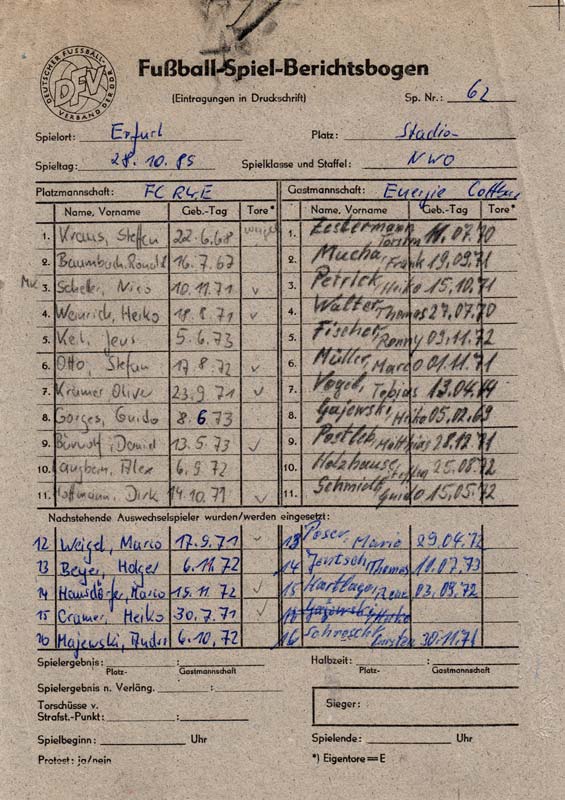 DEUTSCHER FUSSBALL-VERBAND DER DDR
DFV
Fußball-Spiel-Berichtsbogen
(Eintragungen in Druckschrift) Sp. Nr.: 62
Spielort: Erfurt Platz: Stadion
Spieltag: 28.10.85 Spielklasse und Staffel: NWO
Platzmannschaft: FC RWE Gastmannschaft: Energie Cottbus
Name, Vorname Geb.-Tag Tore* Name, Vorname Geb.-Tag Tore*
1. Kraus, Steffen 22.6.68 1. Zestermann, Torsten 11.07.70
2. Baumbach, Ronald 16.7.67 2. Mucha, Frank 19.09.71
MK 3. Scheler, Nico 10.11.71 ✓ 3. Petrick, Heiko 15.10.71
4. Weinrich, Heiko 18.8.71 ✓ 4. Walter, Thomas 27.07.70
5. Kel, Jens 5.6.73 5. Fischer, Ronny 09.11.72
6. Otto, Stefan 17.8.72 ✓ 6. Müller, Marco 01.11.71
7. Krämer Oliver 23.9.71 ✓ 7. Vogel, Tobias 13.04.
8. Gorges, Guido 8.6.73 8. Gajewski, Heiko 05.02.69
9. Daniel 13.5.73 ✓ 9. Postleb, Matthias 28.12.71
10. Langbein, Alex 6.9.72 10. Holzhause, Steffen 25.08.72
11. Hoffmann, Dirk 14.10.71 ✓ 11. Schmidt, Guido 15.05.72
Nachstehende Auswechselspieler wurden/werden eingesetzt:
12 Weigel, Marco 17.9.71 ✓ 13 Poser, Mario 29.04.72
13 Beyer, Holger 6.11.72 14 Jentsch, Thomas 11.07.73
14 Hausdörfer, Marco 19.11.72 ✓ 15 Karthago, Rene 03.09.72
15 Cramer, Heiko 30.7.71 ✓ Gajewski, Heiko
16 Majewski, Andre 6.10.72 16 Schroschk, Carsten 30.11.71
Spielergebnis: : Halbzeit: :
Platz- Gastmannschaft Platz- Gastmannschaft
Spielergebnis n. Verläng. :
Torschüsse v.
Strafst.-Punkt: : Sieger:
Spielbeginn: Uhr Spielende: Uhr
Protest: ja/nein *) Eigentore = E